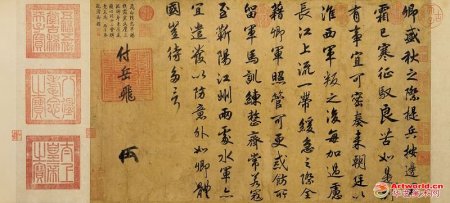 卿盛秋之際提兵按邊風
霜已寒征馭良苦如是別
有事宜可密奏來朝廷以
淮西軍叛之後每加過慮
長江上流一帶緩急之際全
藉卿軍照管可更戒飭所
留軍馬訓練整齊常若寇
至蘄陽江州兩處水軍亦
宜遣發以防意外如卿體
國豈待多言
付岳飛
八徵耄念之寶
太上皇帝之寶
Artworld.cn